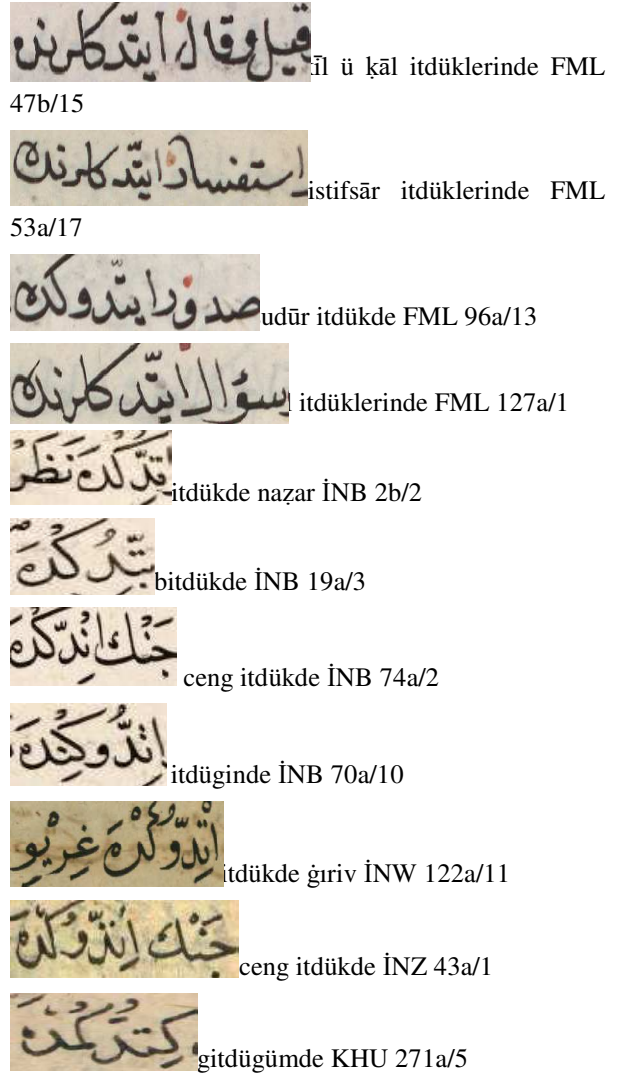 قيل وقال ايتدكلرنده ḳīl ü ḳāl itdüklerinde FML
47b/15
استفسار ايتدكلرنده istifsār itdüklerinde FML
53a/17
صدور ايتدوكده udūr itdükde FML 96a/13
سؤال ايتدكلرنده l itdüklerinde FML 127a/1
اِتدِّكْدَه نَظَرْ itdükde naẓar İNB 2b/2
بتّدُكْدَه bitdükde İNB 19a/3
جَنْك اِتدّكْدَه ceng itdükde İNB 74a/2
اِتدُّوكِنْدَه itdüginde İNB 70a/10
اِتدّوُكْدَه غِرِيْوِ itdükde ġıriv İNW 122a/11
جَنْك اِتدّوُكْدَه ceng itdükde İNZ 43a/1
كِتدُّكُمْدَه gitdügümde KHU 271a/5